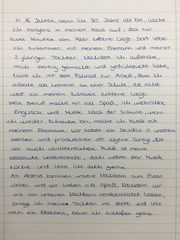 In 15 Jahren, wenn ich 30 Jahre alt bin, wache
ich morgens in meinem Haus auf, das nur
zwei Minuten vom Meer entfernt liegt. Dort lebe
ich zusammen mit meinem Ehemann und meiner
2 jährigen Tochter. Nachdem ich aufstehe,
mich fertig gemacht und gefrühstückt habe,
fahre ich mit dem Fahrrad zur Arbeit, denn ich
arbeite als Lehrerin an einer Schule, die nicht
weit von meinem Zuhause entfernt liegt.
Mein Beruf macht mir viel Spaß, ich unterrichte
Englisch und Musik. Nach der Schule, wenn
ich wieder Zuhause bin, mache ich Musik mit
meinem Ehemann. Wir haben ein Studio in unserem
Keller und produzieren oft eigene Songs, die
wir auch veröffentlichen. Musik ist meine
absolute Leidenschaft, doch neben der Musik
koche und lese ich auch gerne.
Am Abend kommen unsere Nachbarn zum Essen
vorbei und wir haben viel Spaß. Nachdem wir
uns von unseren Nachbarn verabschiedet haben,
bringe ich meine Tochter ins Bett und lese
noch ein bisschen, bevor ich schlafen gehe.